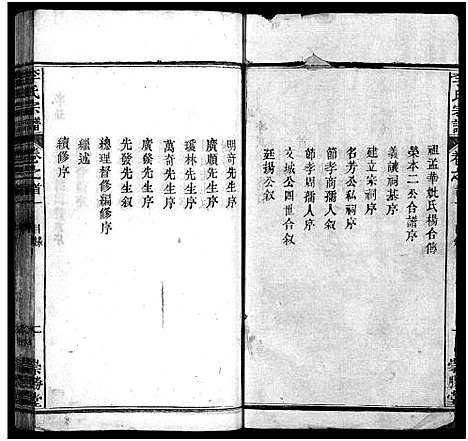 祖孟華妣氏楊合傳
榮本二公合譜序
義議祠基序
建立宗祠序
名芳公私祠序
節孝南孺人序
節孝周孺人序
文城公四世合叙
廷揚公叙
李氏宗譜
卷之首
目錄
一
崇勝堂
明奇先生序
廣順先生序
瑗林先生序
萬奇先生序
廣發先生序
先發先生叙
總理督修編修序
繼述
續修序